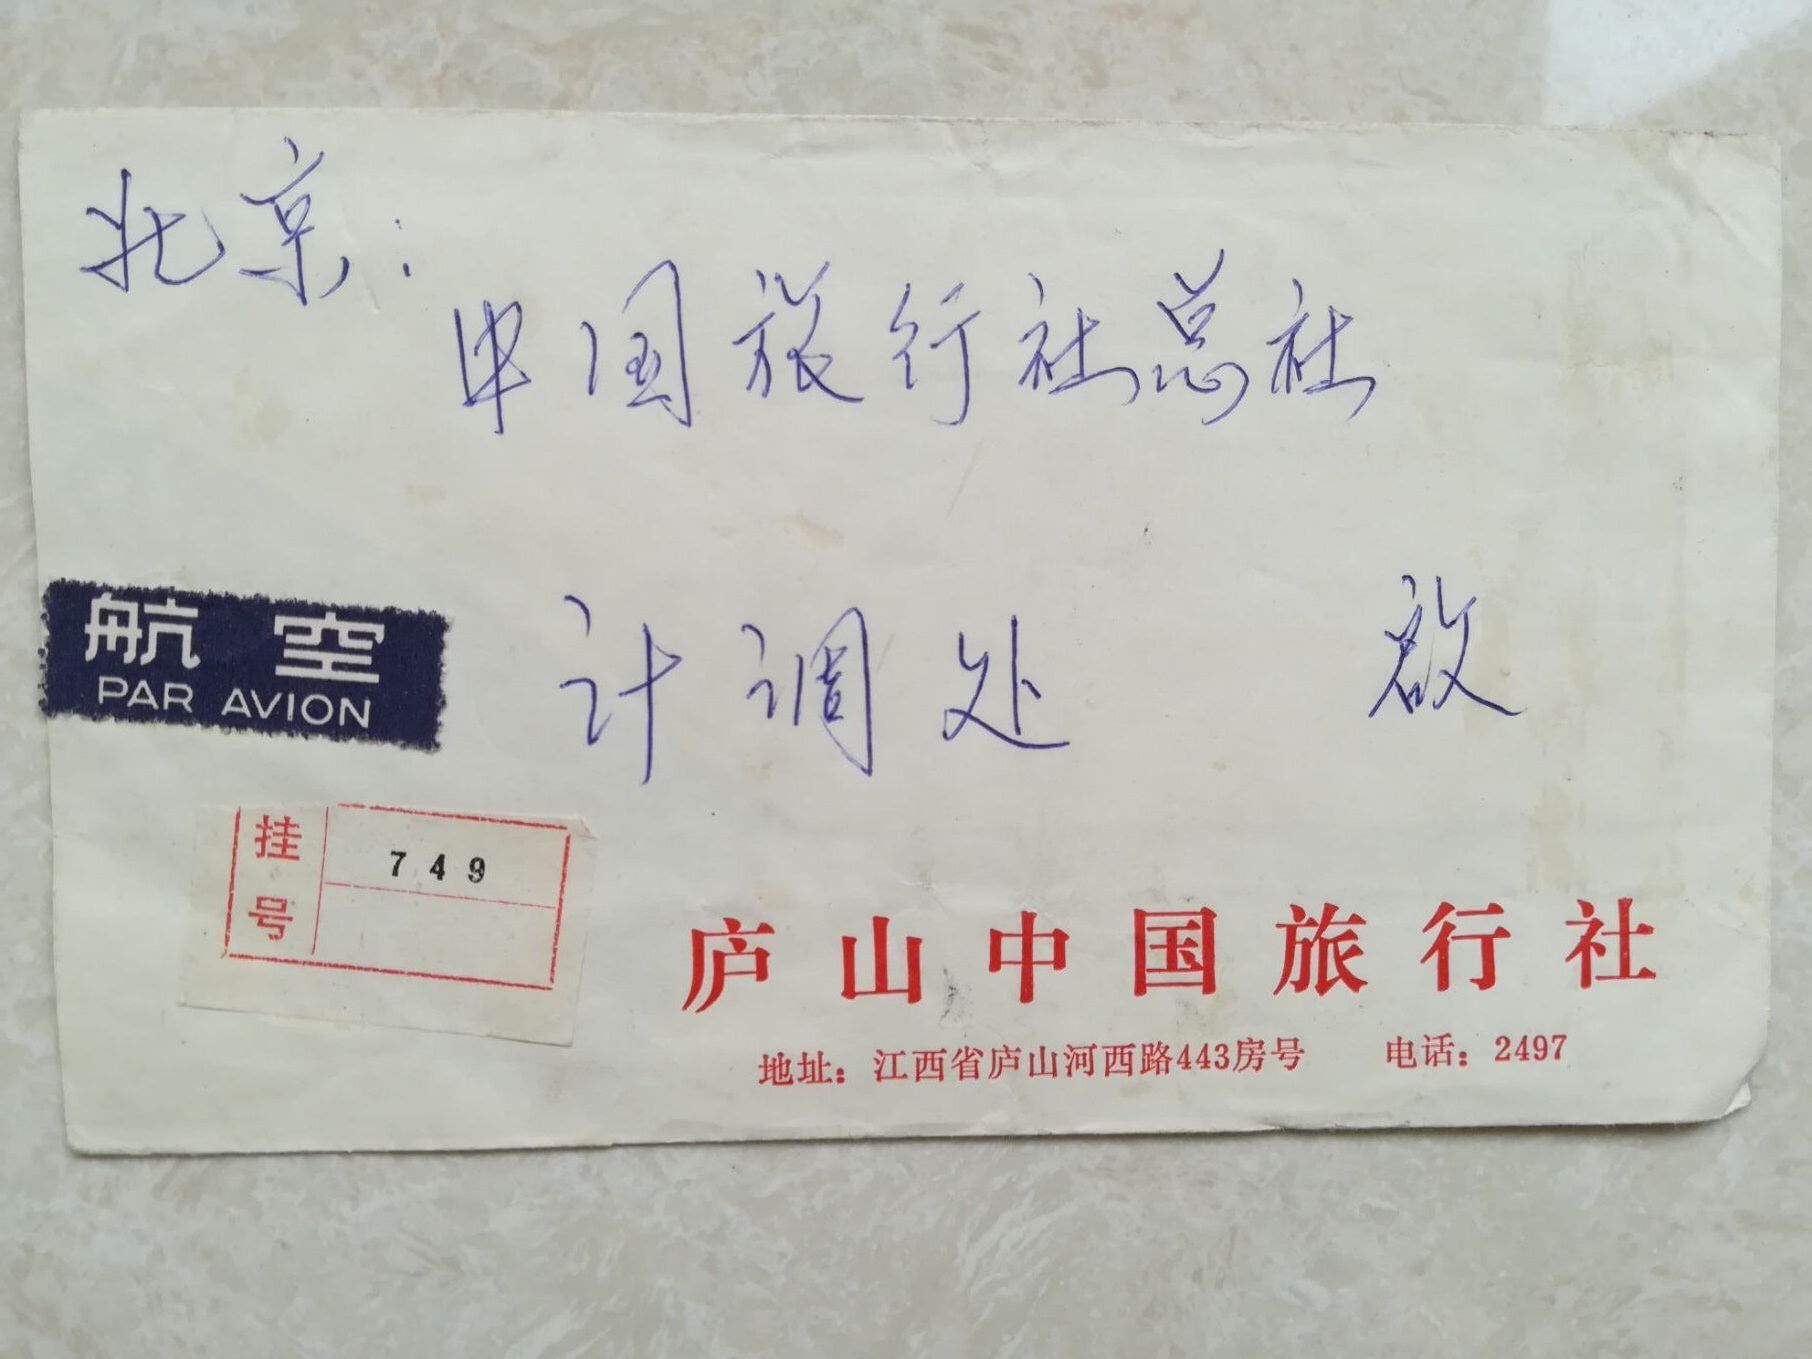 北京：
中国旅行社总社
航空
PAR AVION
计调处 啟
挂号
749
庐山中国旅行社
地址：江西省庐山河西路443房号 电话：2497